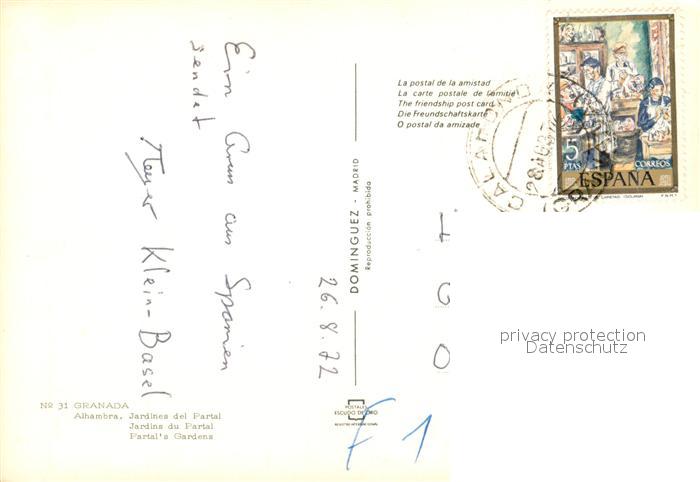 26.8.72
Ein Gruss aus Spanien
sendet
Meyer Klein-Basel
Nº 31 GRANADA
Alhambra, Jardines del Partal
Jardins du Partal
Partal's Gardens
DOMINGUEZ - MADRID
Reproducción prohibida
POSTALES
ESCUDO DE ORO
La postal de la amistad
La carte postale de l'amitié
The friendship post card
Die Freundschaftskarte
O postal da amizade
5
PTAS
CORREOS
ESPAÑA
F.N.M.T.
privacy protection
Datenschutz
1